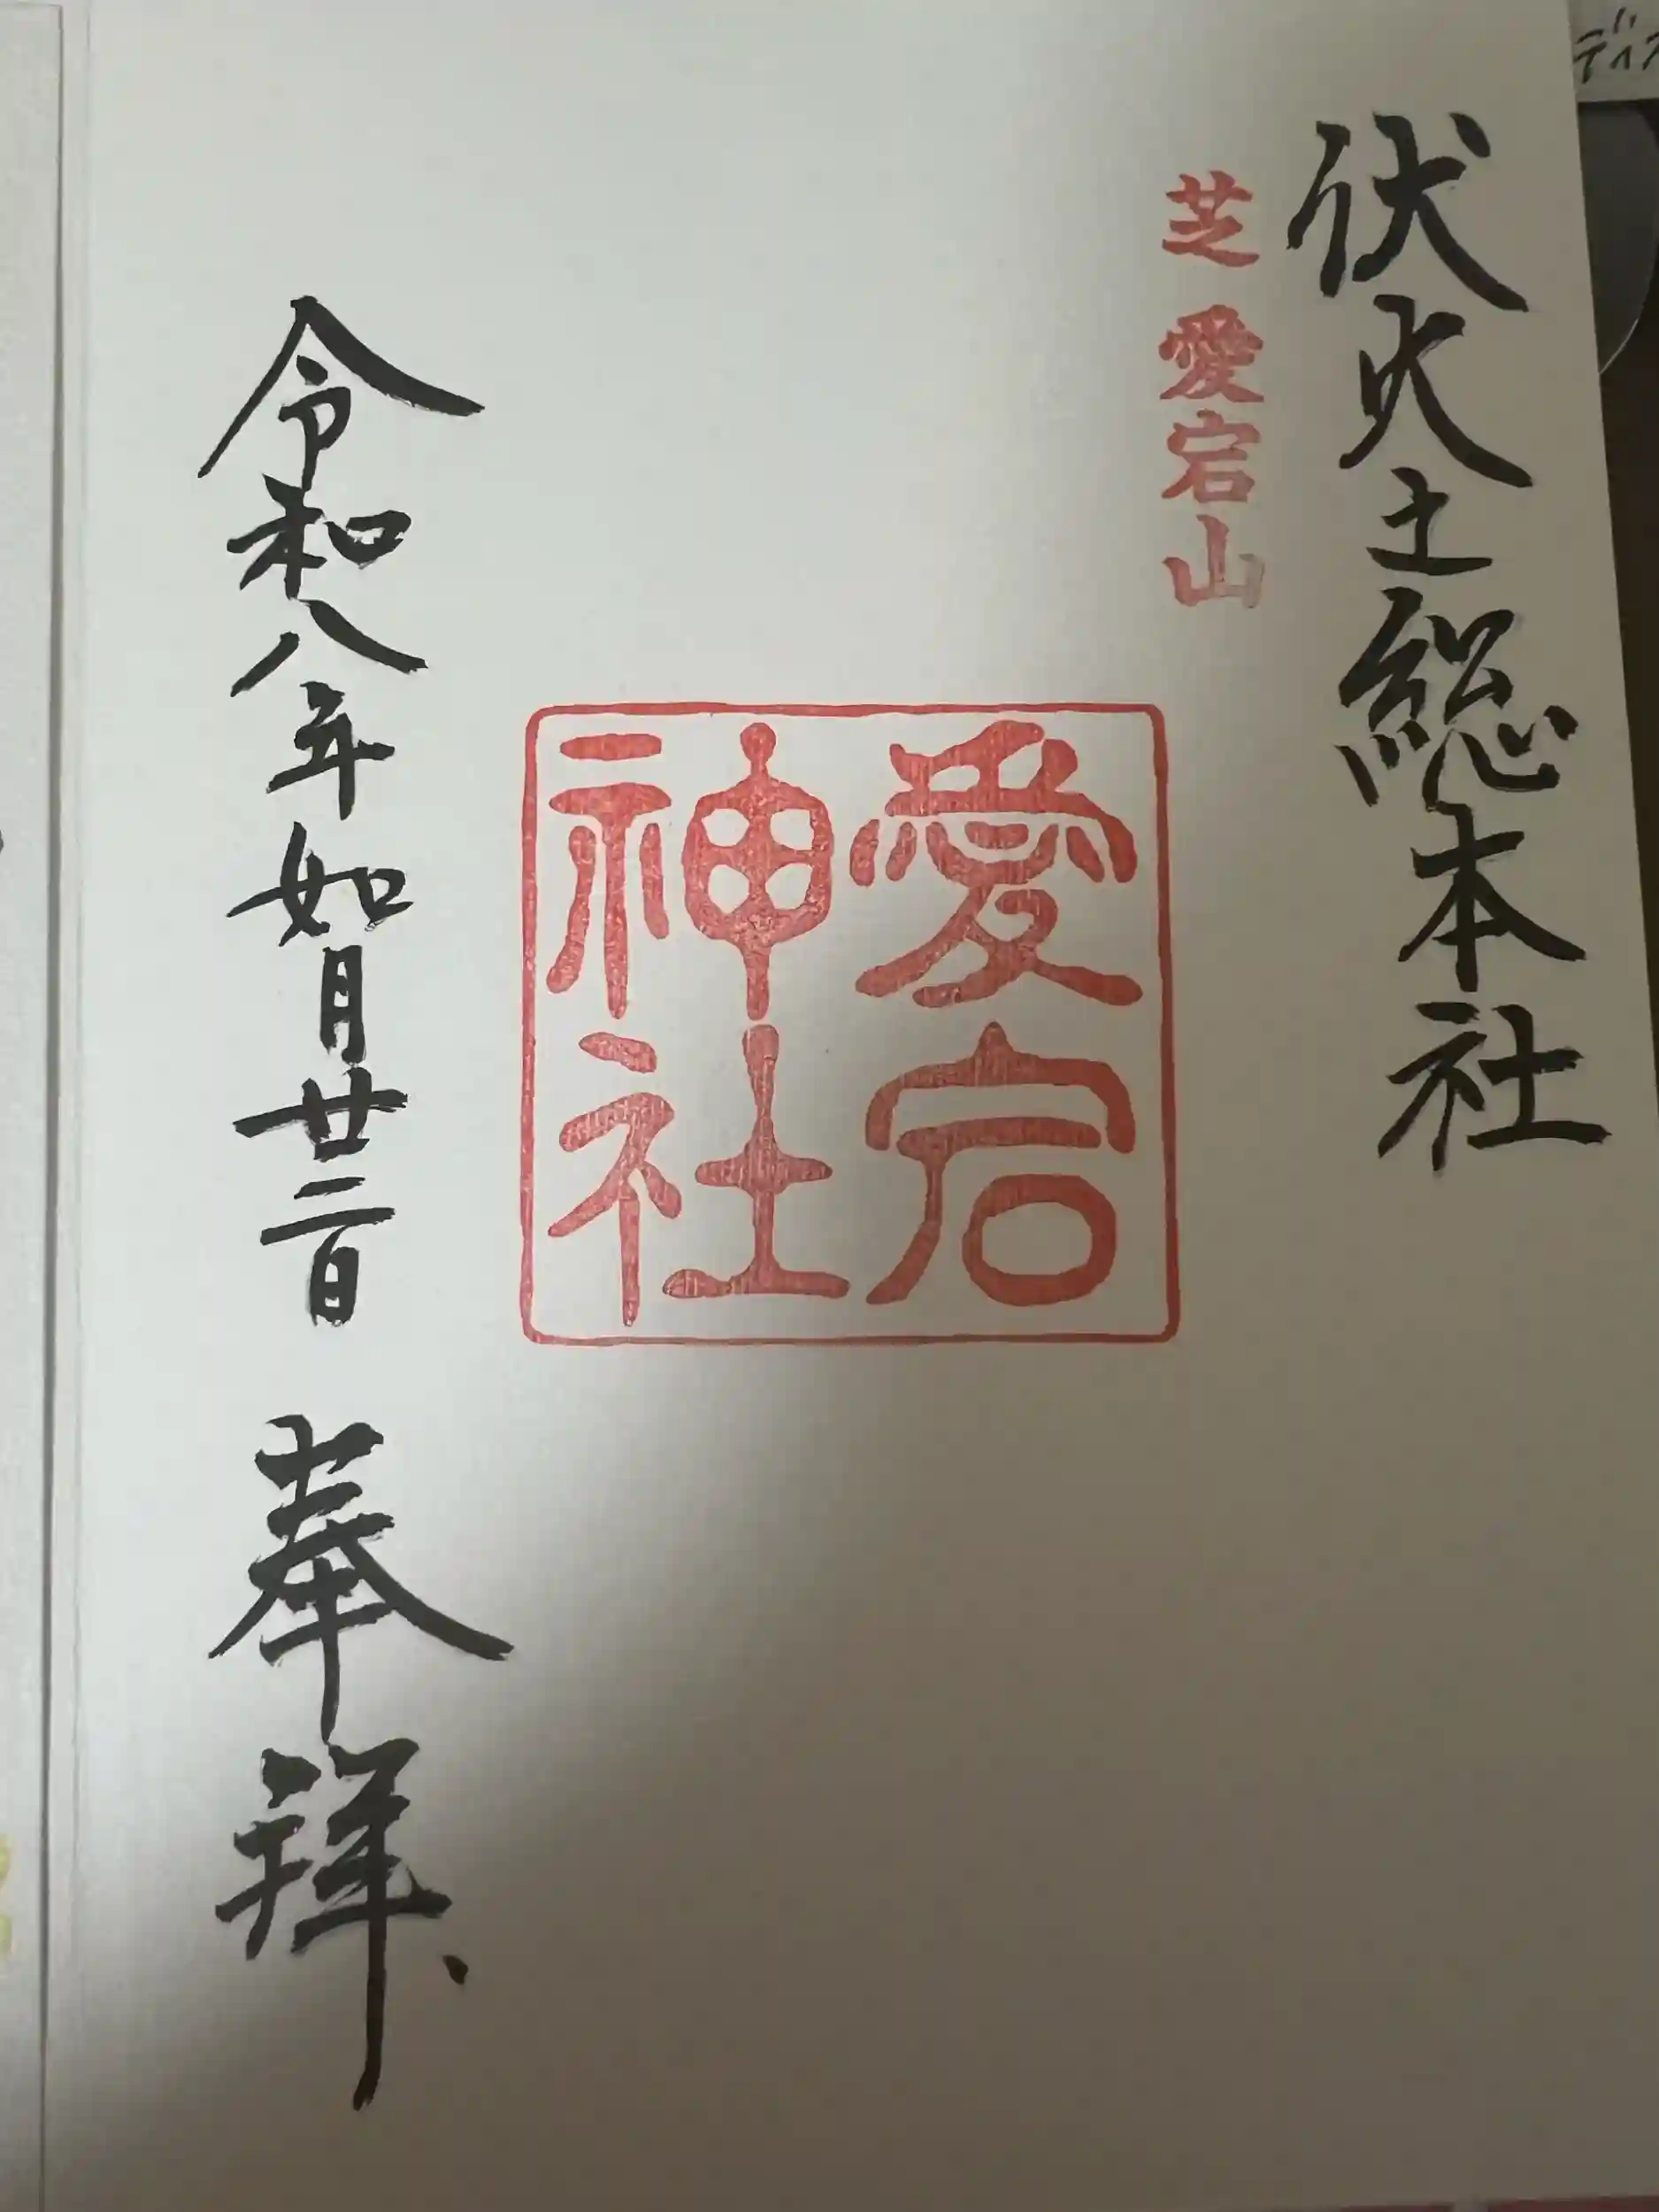 ディ
伏火土総本社
芝 愛宕山
愛宕
神社
令和八年如月廿二日 奉拝